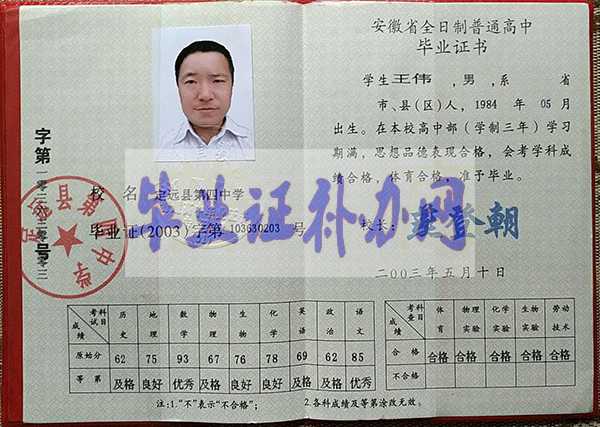 安徽省全日制普通高中
毕业证书
学生王伟,男,系 省
市、县(区)人,1984 年 05 月
出生。在本校高中部(学制三年)学习
期满,思想品德表现合格,会考学科成
绩合格,体育合格,准予毕业。
校 名 定远县第四中学
毕业证(2003)字第 103630203 号
校长:
二00三年五月十日
毕业证补办网
考试科目 历史 地理 数学 物理 生物 化学 英语 政治 语文
成绩
原始分 62 75 93 67 76 78 69 62 85
等第 及格 良好 优秀 及格 良好 良好 及格 及格 优秀
考查科目 体育 物理实验 化学实验 生物实验 劳动技术
成绩
合格 合格 合格 合格 合格 合格
不合格
注:1."不"表示"不合格";
2.各科成绩及等第涂改无效。